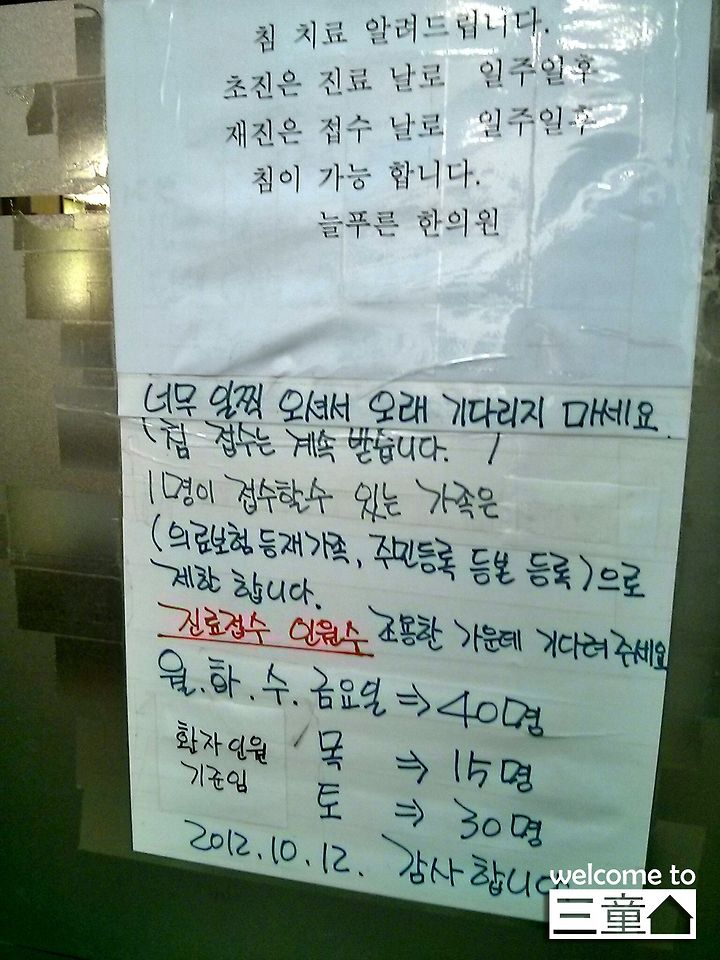 침 치료 알려드립니다.
초진은 진료 날로 일주일후
재진은 접수 날로 일주일후
침이 가능 합니다.
늘푸른 한의원
너무 일찍 오셔서 오래 기다리지 마세요.
(침 접수는 계속 받습니다. )
1명이 접수할수 있는 가족은
(의료보험 등재가족, 주민등록 등본 등록)으로
제한 합니다.
진료접수 인원수 조용한 가운데 기다려주세요
월.화.수.금요일 ⇒ 40명
환자인원
기준임
목 ⇒ 15명
토 ⇒ 30명
2012.10.12. 감사합니다
welcome to
三童